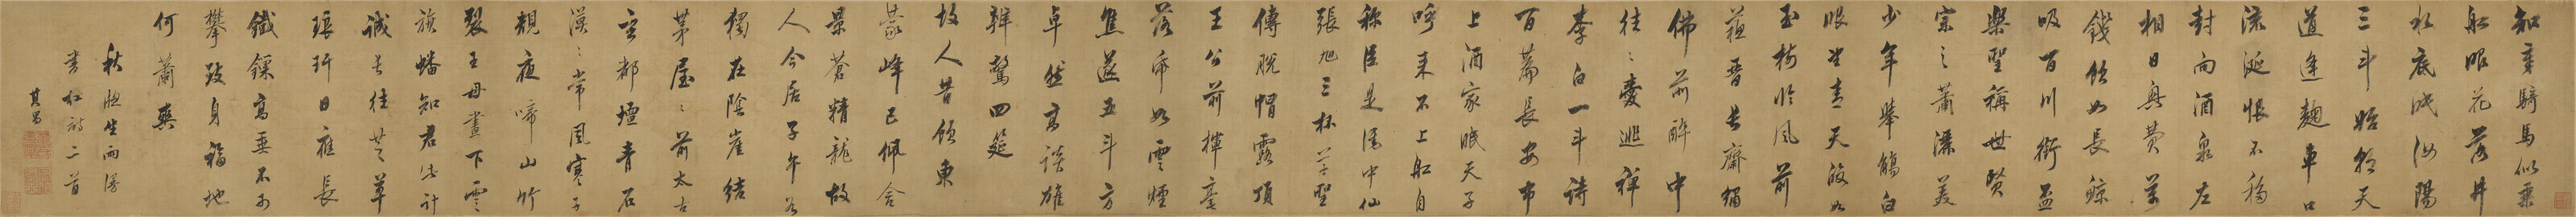 知章騎馬似乘
船眼花落井
水底眠汝陽
三斗始朝天
道逢麴車口
流涎恨不移
封向酒泉左
相日興費萬
錢飲如長鯨
吸百川銜盃
樂聖稱世賢
宗之蕭灑美
少年舉觴白
眼望青天皎如
玉樹臨風前
蘇晉長齋繡
佛前醉中
往々愛逃禪
李白一斗詩
百篇長安市
上酒家眠天子
呼來不上船自
稱臣是酒中仙
張旭三杯草聖
傳脫帽露頂
王公前揮毫
落紙如雲煙
焦遂五斗方
卓然高談雄
辯驚四筵
故人昔隱東
蒙峰已佩含
景蒼精龍故
人今居子午谷
獨在陰崖結
茅屋々前太古
玄都壇青石
漠々常風寒子
規夜啼山竹
裂王母晝下雲
旗翻知君此計
誠長往芝草
琅玕日應長
鐵鎖高垂不可
攀致身福地
何蕭爽
秋牕坐雨漫
書杜詩二首
其昌